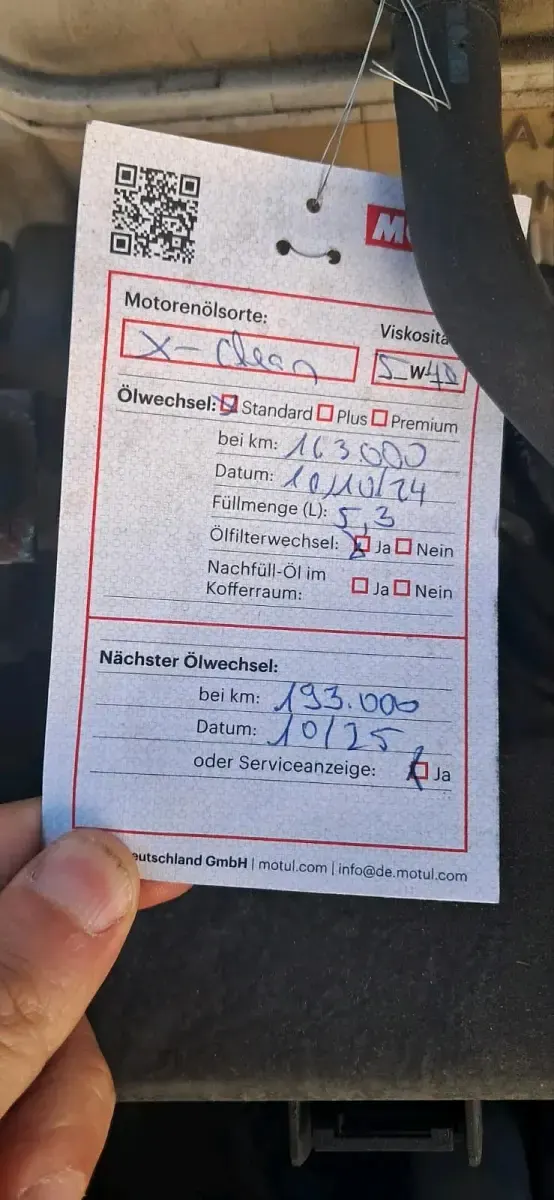 Motorenölsorte:
Viskositä
X-Clean
5 W 40
Ölwechsel: Standard Plus Premium
bei km: 163000
Datum: 10/10/24
Füllmenge (L): 5,3
Ölfilterwechsel: Ja Nein
Nachfüll-Öl im
Kofferraum: Ja Nein
Nächster Ölwechsel:
bei km: 193.000
Datum: 10/25
oder Serviceanzeige: Ja
eutschland GmbH | motul.com | info@de.motul.com